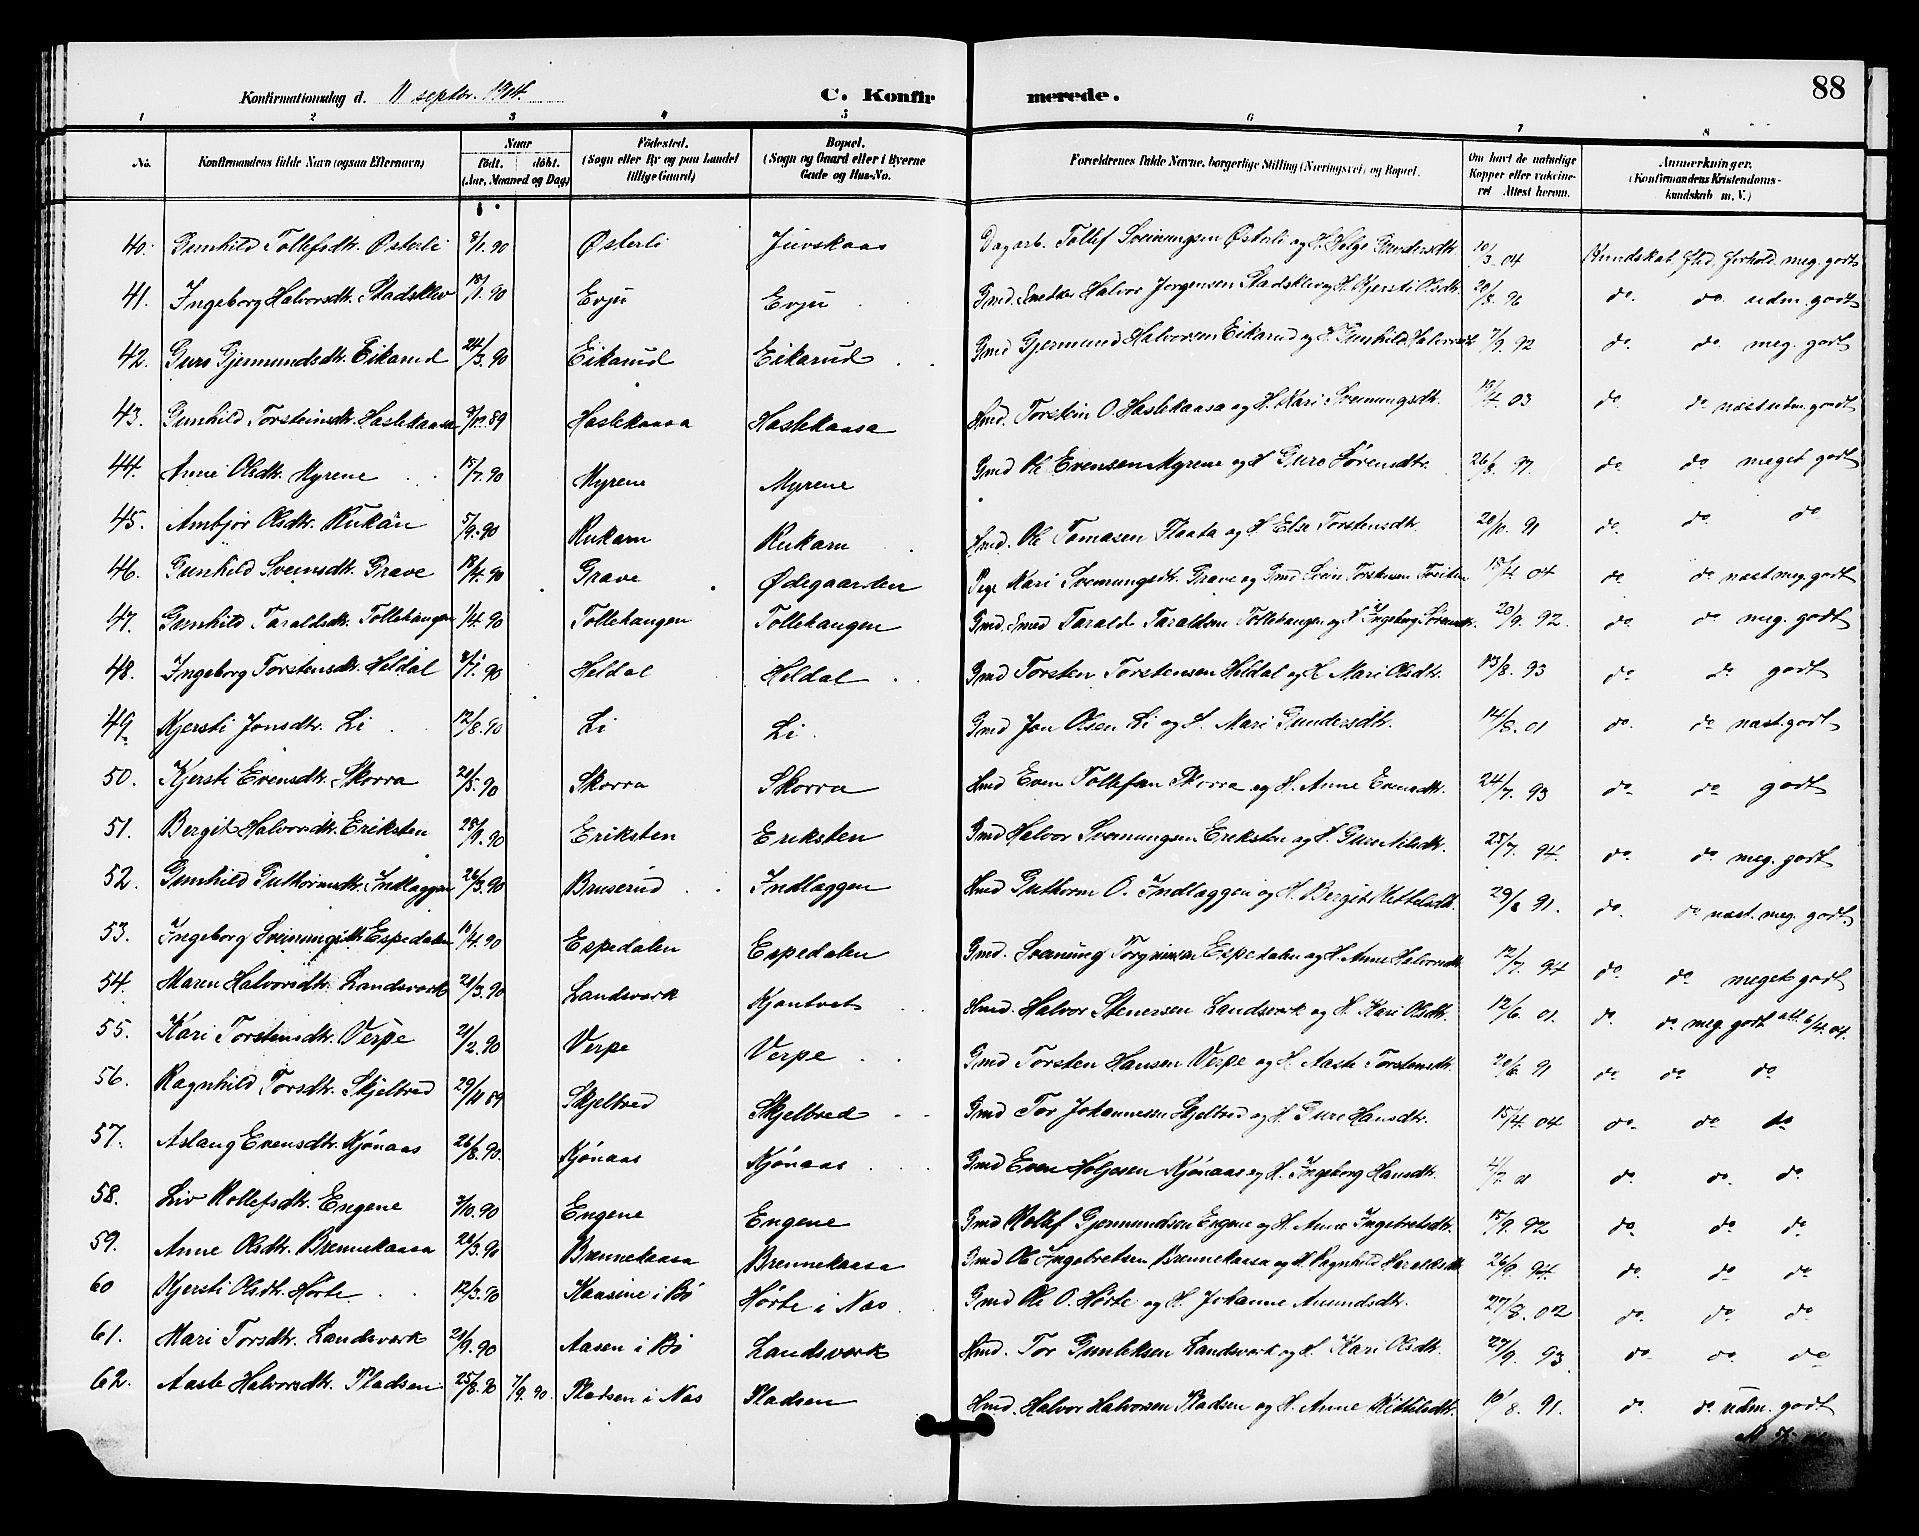 88
Konfirmationsdag d. 11 septbr. 1904. C. Konfirmerede.
1 2 3 4 5 6 7 8
No. Konfirmandens fulde Navn (ogsaa Efternavn) Naar født. døbt. (Aar, Maaned og Dag) Fødested. (Sogn eller By og paa Landet tillige Gaard) Bopæl. (Sogn og Gaard eller i Byerne Gade og Hus-No. Forældrenes fulde Navne, borgerlige Stilling (Næringsvei) og Bopæl. Om havt de naturlige Kopper eller vakcineret Attest herom. Anmærkninger. (Konfirmandens Kristendomskundskab m. V.)
40. Gunhild Tollefsdtr. Østerli 9/1.90 Østerli Juvskaas Dagarb. Tollef Sveinungsen Østerli og H. Helge Gundersdtr. 10/3.04 Kundskab flid forhold meg. godt
41. Ingeborg Halvorsdtr. Stadsklev 18/1.90 Evju Evju Gmd. Snedker Halvor Jørgensen Stadsklev og H. Kjersti Olsdtr. 20/8.96 do. do. udm. godt
42. Guro Gjermundsdtr. Eikarud 24/3.90 Eikarud Eikarud Gmd Gjermund Halvorsen Eikarud og H. Gunhild Halvorsdtr 7/9.92 do. do. meg. godt
43. Gunhild Torsteinsdtr. Haslekaasa 9/12.89 Haslekaasa Haslekaasa Hmd. Torstein O. Haslekaasa og H. Kari Sveinungsdtr. 19/4.03 do. do næst udm. godt
44. Anne Olsdtr. Myrene 15/7.90 Myrene Myrene Gmd Ole Evensen Myrene og H Guro Sørensdtr. 26/8.97. do. do meget godt
45. Ambjør Olsdtr. Rukän 5/9.90 Rukarn Rukarn Hmd. Ole Tomasen Flaata og H Else Torstensdtr. 20/10.91 do. do do
46. Gunhild Sveinsdtr. Grave 18/4.90 Grave Ødegaarden Pige Kari Sveinungsdtr. Grave og Gmd Svein Torstensen 15/4.04 do do næst meg. godt
47. Gunhild Taraldsdtr. Tollehaugen 1/4.90 Tollehaugen Tollehaugen Gmd. Smed Tarald Taraldsen Tollehaugen og H Ingeborg Sørensdtr. 20/9.92. do. do. meg. godt
48. Ingeborg Torstensdtr. Heldal 3/1.90 Heldal Heldal Gmd Torsten Torstensen Heldal og H. Mari Olsdtr. 13/8.93 do. do. godt
49. Kjersti Jonsdtr. Li 12/8.90 Li Li. Gmd Jon Olsen Li og H. Mari Gundersdtr. 14/8.01 do. do næst. godt
50. Kjersti Evensdtr. Skorra 20/5.90 Skorra Skorra Hmd Even Tollefsen Skorra og H. Anne Evensdtr. 24/7.93 do. do godt
51. Bergit Halvorsdtr. Eriksten 28/9.90 Eriksten Eriksten Gmd Halvor Sveinungsen Eriksten og H. Guro Nilsdtr. 25/7.94. do. do. meg. godt
52. Gunhild Guthormsdtr. Indlaggen 26/3.90 Bruserud Indlaggen Hmd Guthorm O. Indlaggen og H. Bergit Kittelsdtr. 29/8 91. do. do næst. meg. godt.
53. Ingeborg Sveinungsdtr Espedalen 10/4.90 Espedalen Espedalen Gmd. Sveinung Torgrimsen Espedalen og H. Anne Halvorsdtr 12/7.94 do do. meget godt
54. Maren Halvorsdtr. Landsverk 20/3.90 Landsverk Kjøntvet Hmd. Halvor Stenersen Landsverk og H. Kari Olsdtr. 12/6.01. do. do meg. godt att. 6/4.04.
55. Kari Torstensdtr. Verpe 21/2.90 Verpe Verpe Gmd Torsten Hansen Verpe og H. Aaste Torstensdtr. 20/6.91 do do do
56. Ragnhild Torsdtr. Skjelbred 29/11 89 Skjelbred Skjelbred Gmd Tor Johannessen Skjelbred og H. Guro Hansdtr. 15/4.04 do. do do
57. Aslaug Evensdtr. Kjønaas 26/8.90. Kjønaas Kjønaas Gmd Even Holjesen Kjønaas og H. Ingeborg Hansdtr. 4/7 01 do. do. do
58. Liv Rollefsdtr. Engene 3/10.90 Engene Engene Gmd Rollef Gjermundsen Engene og H. Anne Ingebretsdtr. 15/9.92 do. do. do
59. Anne Olsdtr. Brennekaasa 20/3.90 Brennekaasa Brennekaasa Gmd Ole Ingebretsen Brennekaasa og H. Ragnhild Haraldsdtr 26/9.94. do. do do
60 Kjersti Olsdtr. Hørte 12/3.90 Kaasine i Bø Hørte i Nes Gmd Ole O. Hørte og H. Johanne Amundsdtr. 27/8.02 do. do. do
61. Mari Torsdtr. Landsverk 20/9.90 Aasen i Bø Landsverk Hmd. Tor Gunleksen Landsverk og H. Kari Olsdtr. 27/9.93. do do. do
62. Aaste Halvorsdtr. Pladsen 25/8.90 7/9.90. Pladsen i Nes Pladsen Hmd. Halvor Halvorsen Pladsen og H. Anne Kittilsdtr. 10/8.91. do do. udm. godt